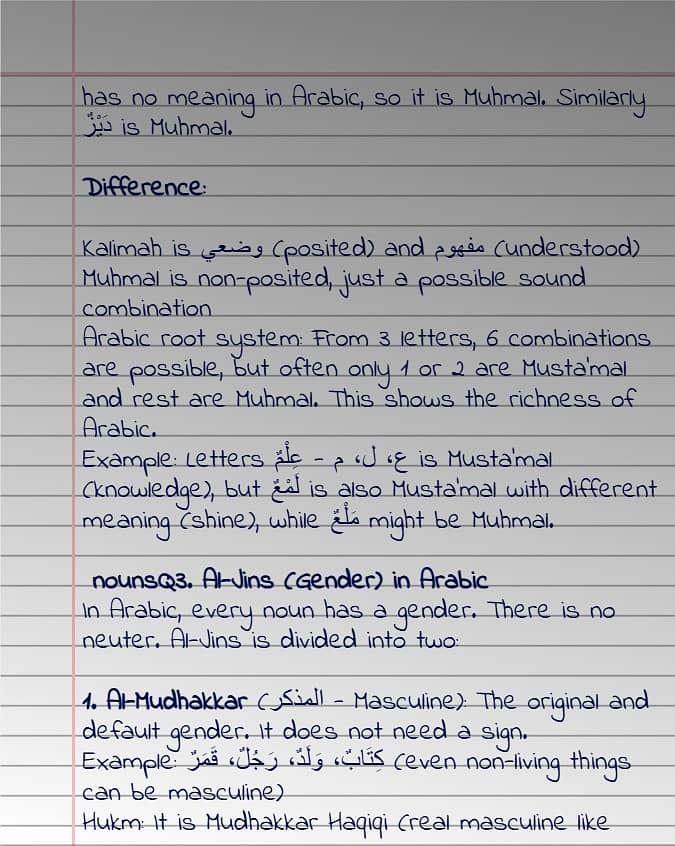 has no meaning in Arabic, so it is Muhmal. Similarly
دَيْزٌ is Muhmal.
Difference:
Kalimah is وضعي (posited) and مفهوم (understood)
Muhmal is non-posited, just a possible sound
combination
Arabic root system: From 3 letters, 6 combinations
are possible, but often only 1 or 2 are Musta'mal
and rest are Muhmal. This shows the richness of
Arabic.
Example: Letters ع، ل، م - عِلْمٌ is Musta'mal
(knowledge), but لَمْعٌ is also Musta'mal with different
meaning (shine), while مَلْعٌ might be Muhmal.
nounsQ3. Al-Jins (Gender) in Arabic
In Arabic, every noun has a gender. There is no
neuter. Al-Jins is divided into two:
1. Al-Mudhakkar (المذكر - Masculine): The original and
default gender. It does not need a sign.
Example: كِتَابٌ، وَلَدٌ، رَجُلٌ، قَمَرٌ (even non-living things
can be masculine)
Hukm: It is Mudhakkar Haqiqi (real masculine like